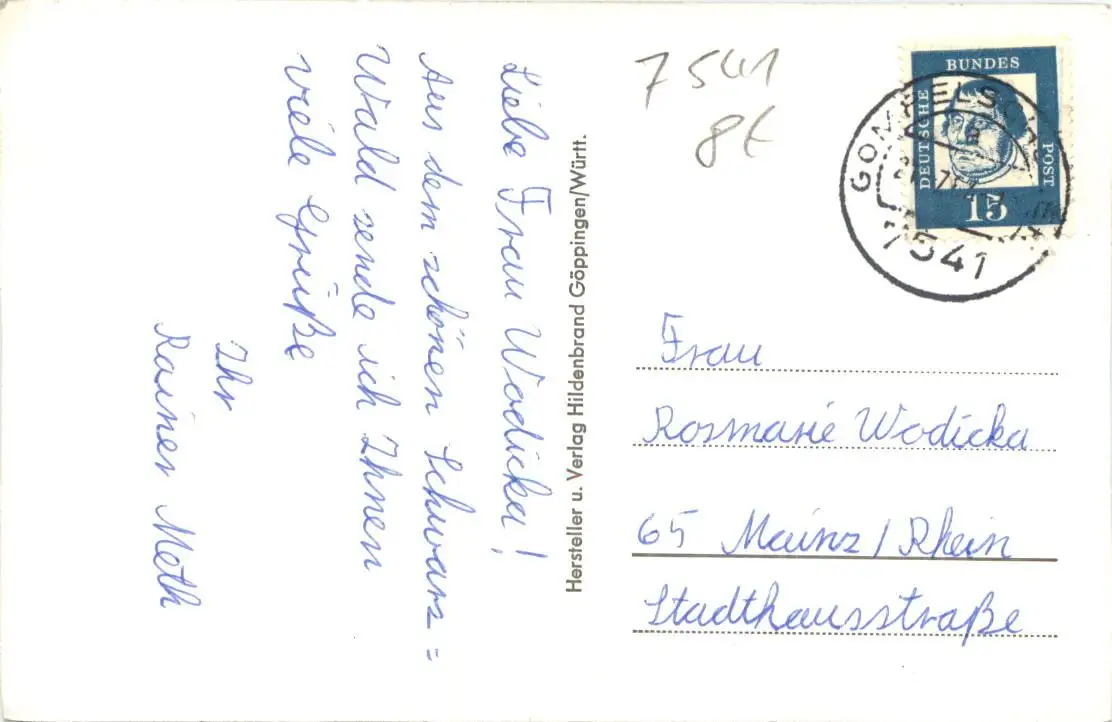 Liebe Frau Wodicka!
Aus dem schönen Schwarz=
Wald sende ich Ihnen
viele Grüße
Ihr
Rainer Meth
Hersteller u. Verlag Hildenbrand Göppingen/Württ.
7541
8€
DEUTSCHE BUNDES POST
15
7541
Frau
Rosmarie Wodicka
65 Mainz/Rhein
Stadthausstraße